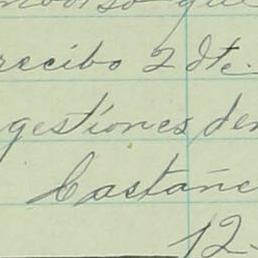 que
recibo 2 dte.
gestiones den
Castañe
12-